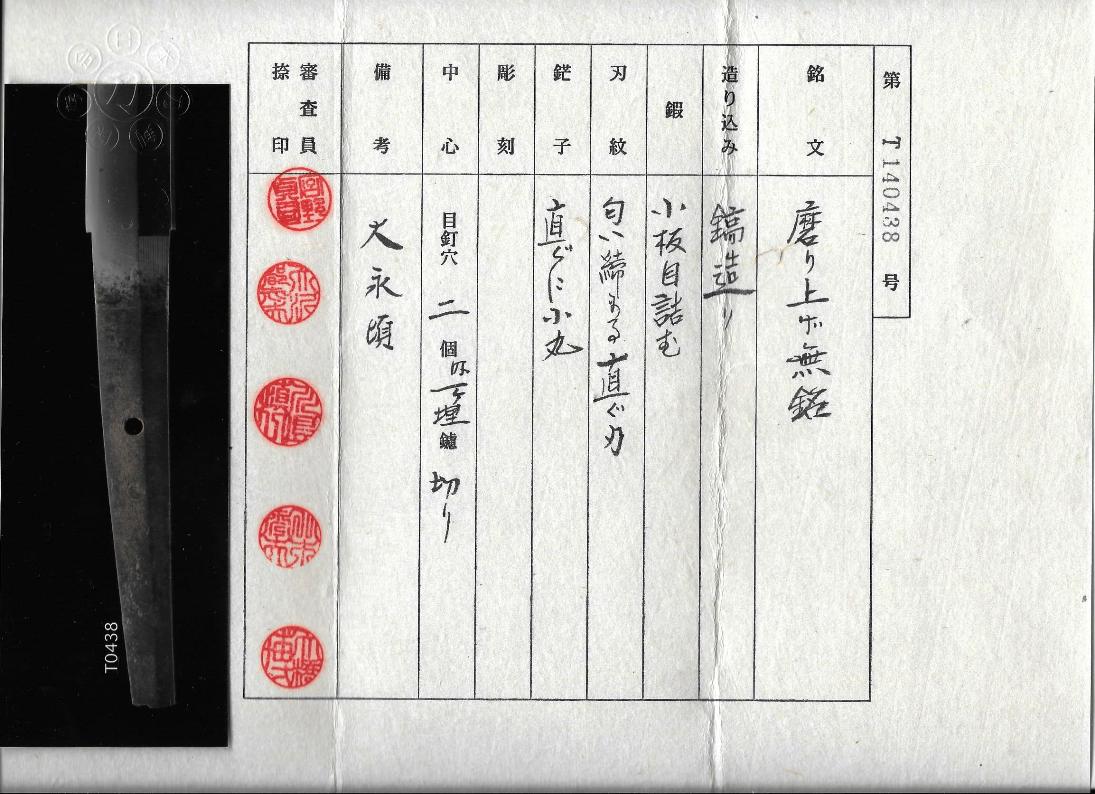 第 T 140438 号
銘文
磨り上げ無銘
造り込み
鎬造り
鍜
小板目詰む
刃紋
匂い締まる直ぐ刃
鋩子
直ぐに小丸
彫刻
中心
目釘穴 二 個 内一ヶ埋 鑢 切り
備考
大永頃
審査員
捺印
T0438